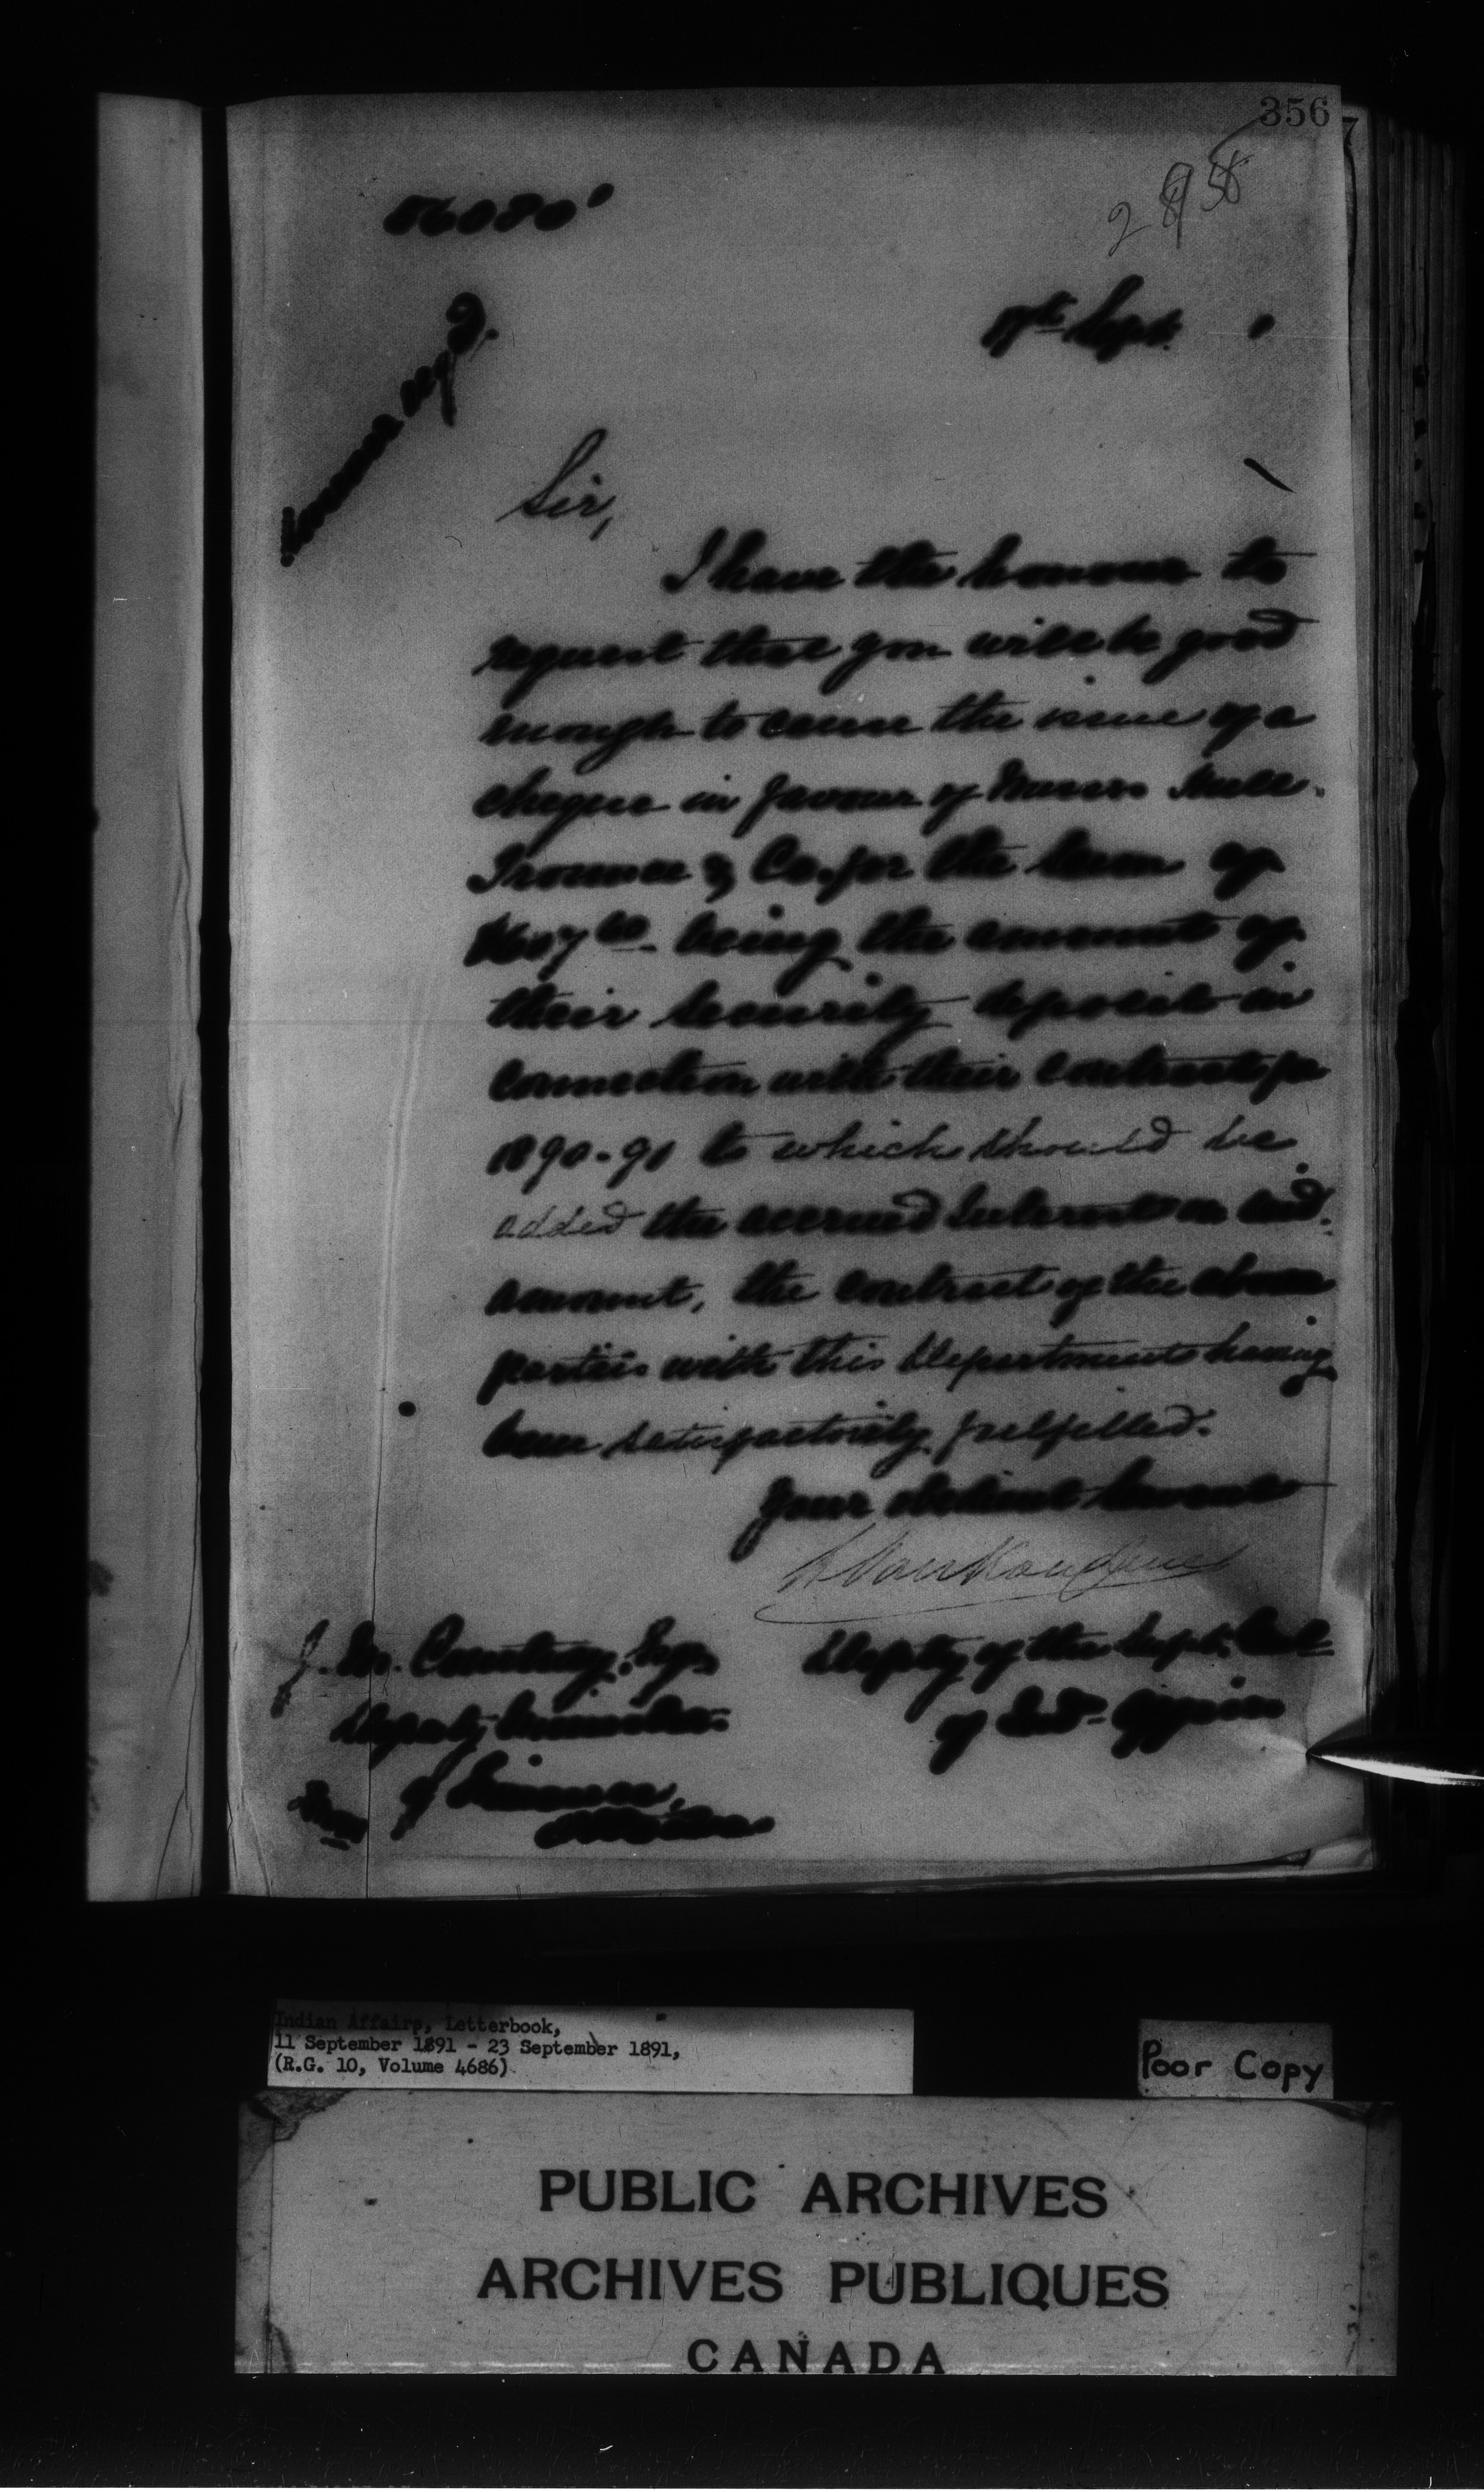 356
Sir,
I have the honour to
request that you will be good
enough to cause the issue of a
cheque in favour of Messrs
& Co. for the sum of
being the amount of
their security deposit in
connection with their contract for
1890-91 to which should be
added the accrued interest on said
amount, the contract of the above
parties with this Department having
been satisfactorily fulfilled.
Your obedient servant
L Vankoughnet
J. M. Courtney, Esq.
Deputy of the Supt. Genl
Deputy Minister
of Ind. Affairs
of Finance,
Ottawa
Indian Affairs, Letterbook,
11 September 1891 - 23 September 1891,
(R.G. 10, Volume 4686)
Poor Copy
PUBLIC ARCHIVES
ARCHIVES PUBLIQUES
CANADA